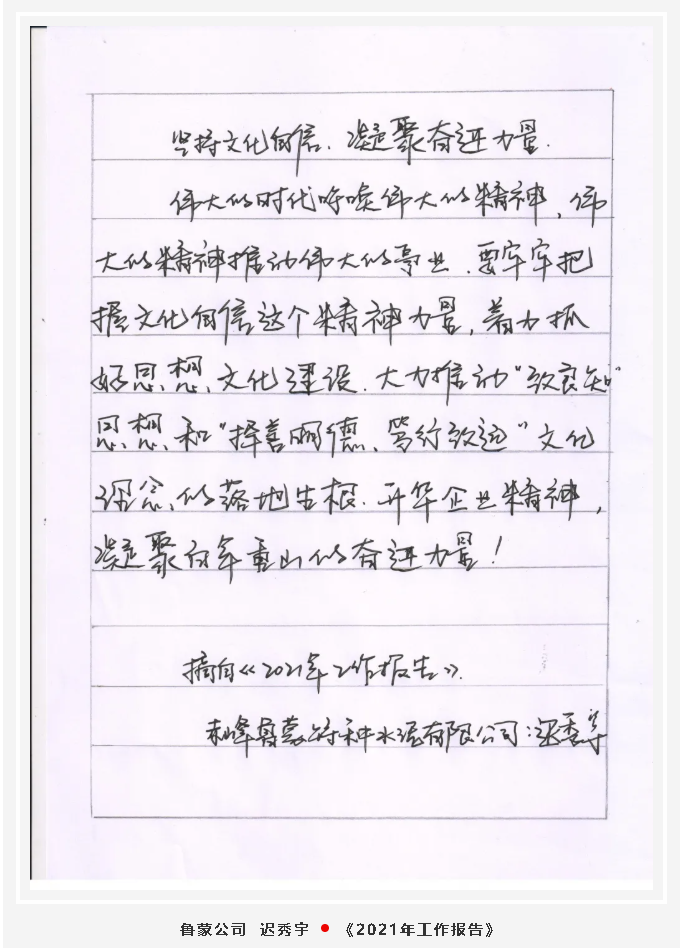 坚持文化自信、凝聚奋进力量.
伟大的时代呼唤伟大的精神，伟
大的精神推动伟大的事业.要牢牢把
握文化自信这个精神力量，着力抓
好思想、文化建设.大力推动“致良知”
思想、和“择善明德、笃行致远”文化
理念、的落地生根.升华企业精神，
凝聚百年重山的奋进力量！
摘自《2021年工作报告》.
赤峰鲁蒙特种水泥有限公司：迟秀宇
鲁蒙公司 迟秀宇 • 《2021年工作报告》